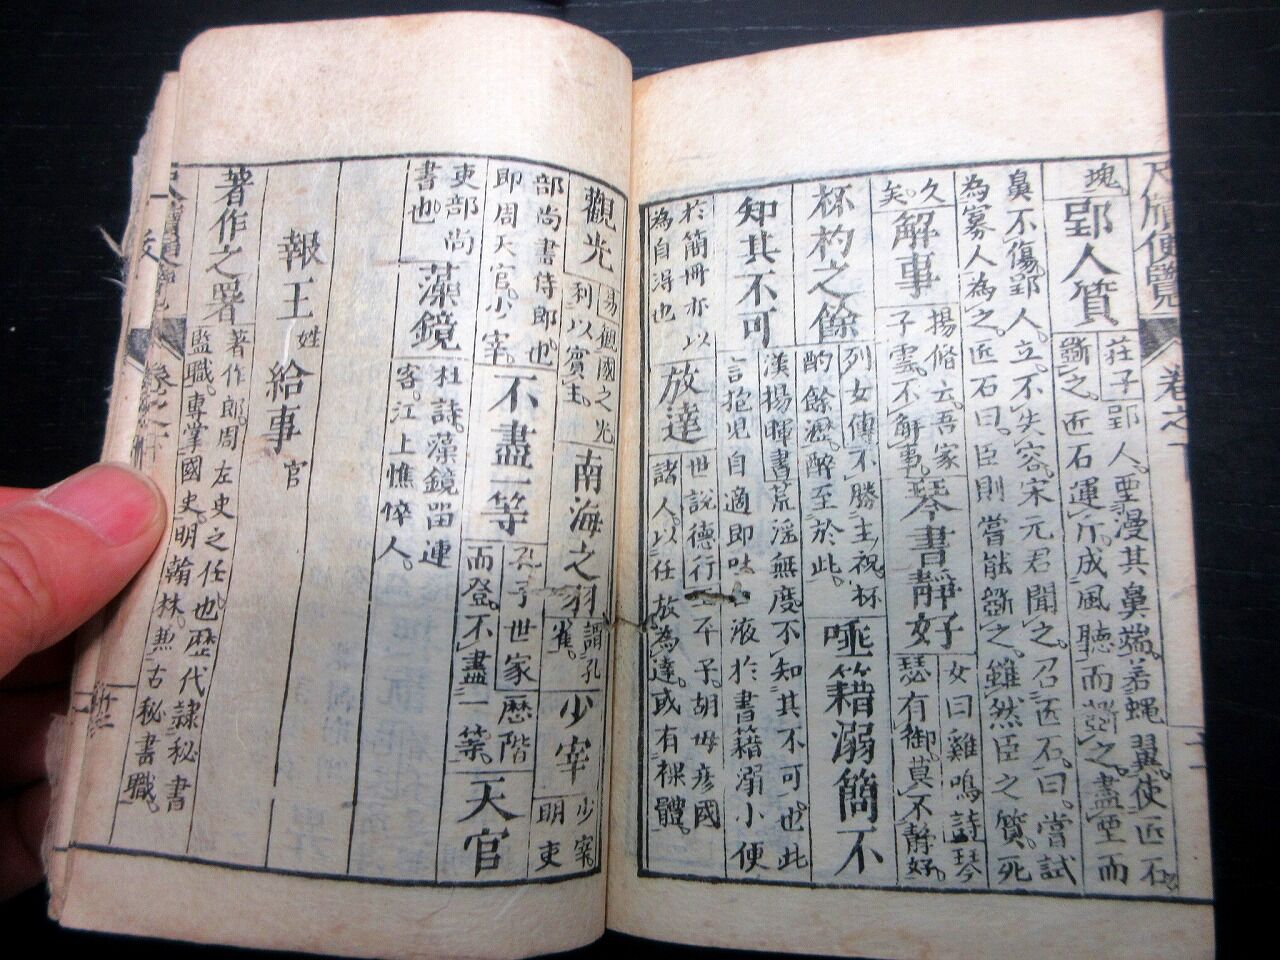 尺牘便覽 卷之
塊
郢人質
莊子郢人堊漫其鼻端若蠅翼使匠石
斵之匠石運斤成風聽而斵之盡堊而
鼻不傷郢人立不失容宋元君聞之召匠石曰嘗試
為寡人為之匠石曰臣則嘗能斵之雖然臣之質死
久
矣
解事
揚脩云吾家
子雲不解事
琴書靜好
女曰雞鳴詩琴
瑟有御莫不靜好
杯杓之餘
列女傳不勝主祝杯
酌餘瀝醉至於此
唾籍溺簡不
知其不可
漢揚暉書荒淫無度不知其不可也此
言抱児自適即吐液於書籍溺小便
於簡冊亦以
為自得也
放達
世說德行王平子胡毋彦國
諸人以任放為達或有裸體
觀光
易觀國之光
利以賓主
南海之羽
謂孔
雀
少宰
少宰
明吏
部尚書侍郎也
即周天官小宰
不盡一等
孔子世家歷階
而登不盡一等
天官
吏部尚
書也
藻鏡
杜詩藻鏡留連
客江上憔悴人
報王姓給事官
著作之署
著作郎周左史之任也歷代隸秘書
監職專掌國史明翰林兼古秘書職